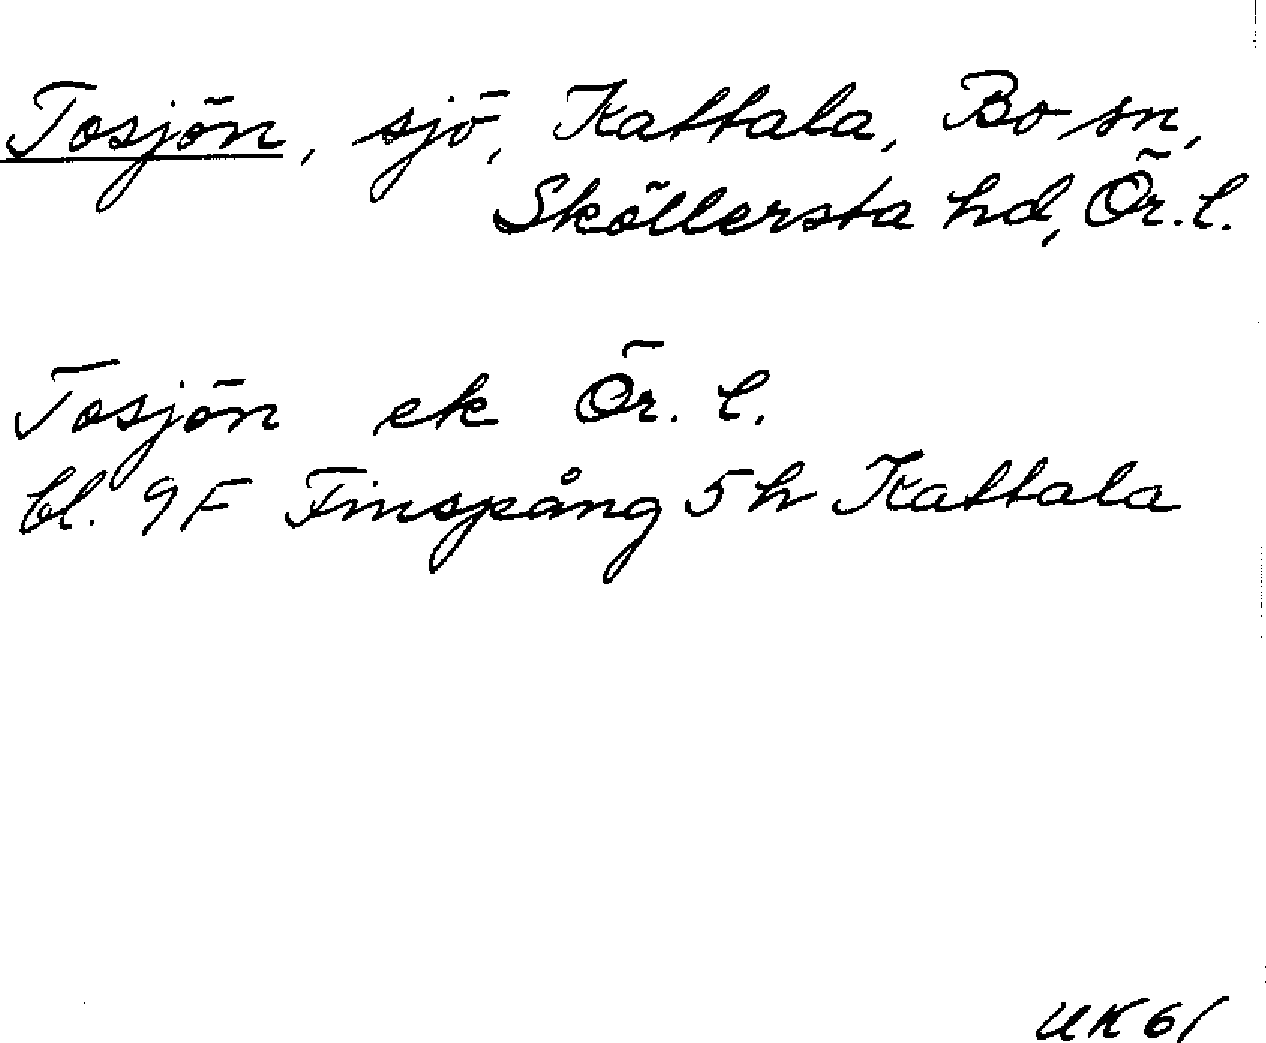 Tosjön, sjö, Kattala, Bo sn,
Sköllersta hd, Ör. l.
Tosjön ek Ör. l.
bl. 9F Finspång 5h Kattala
UK 61